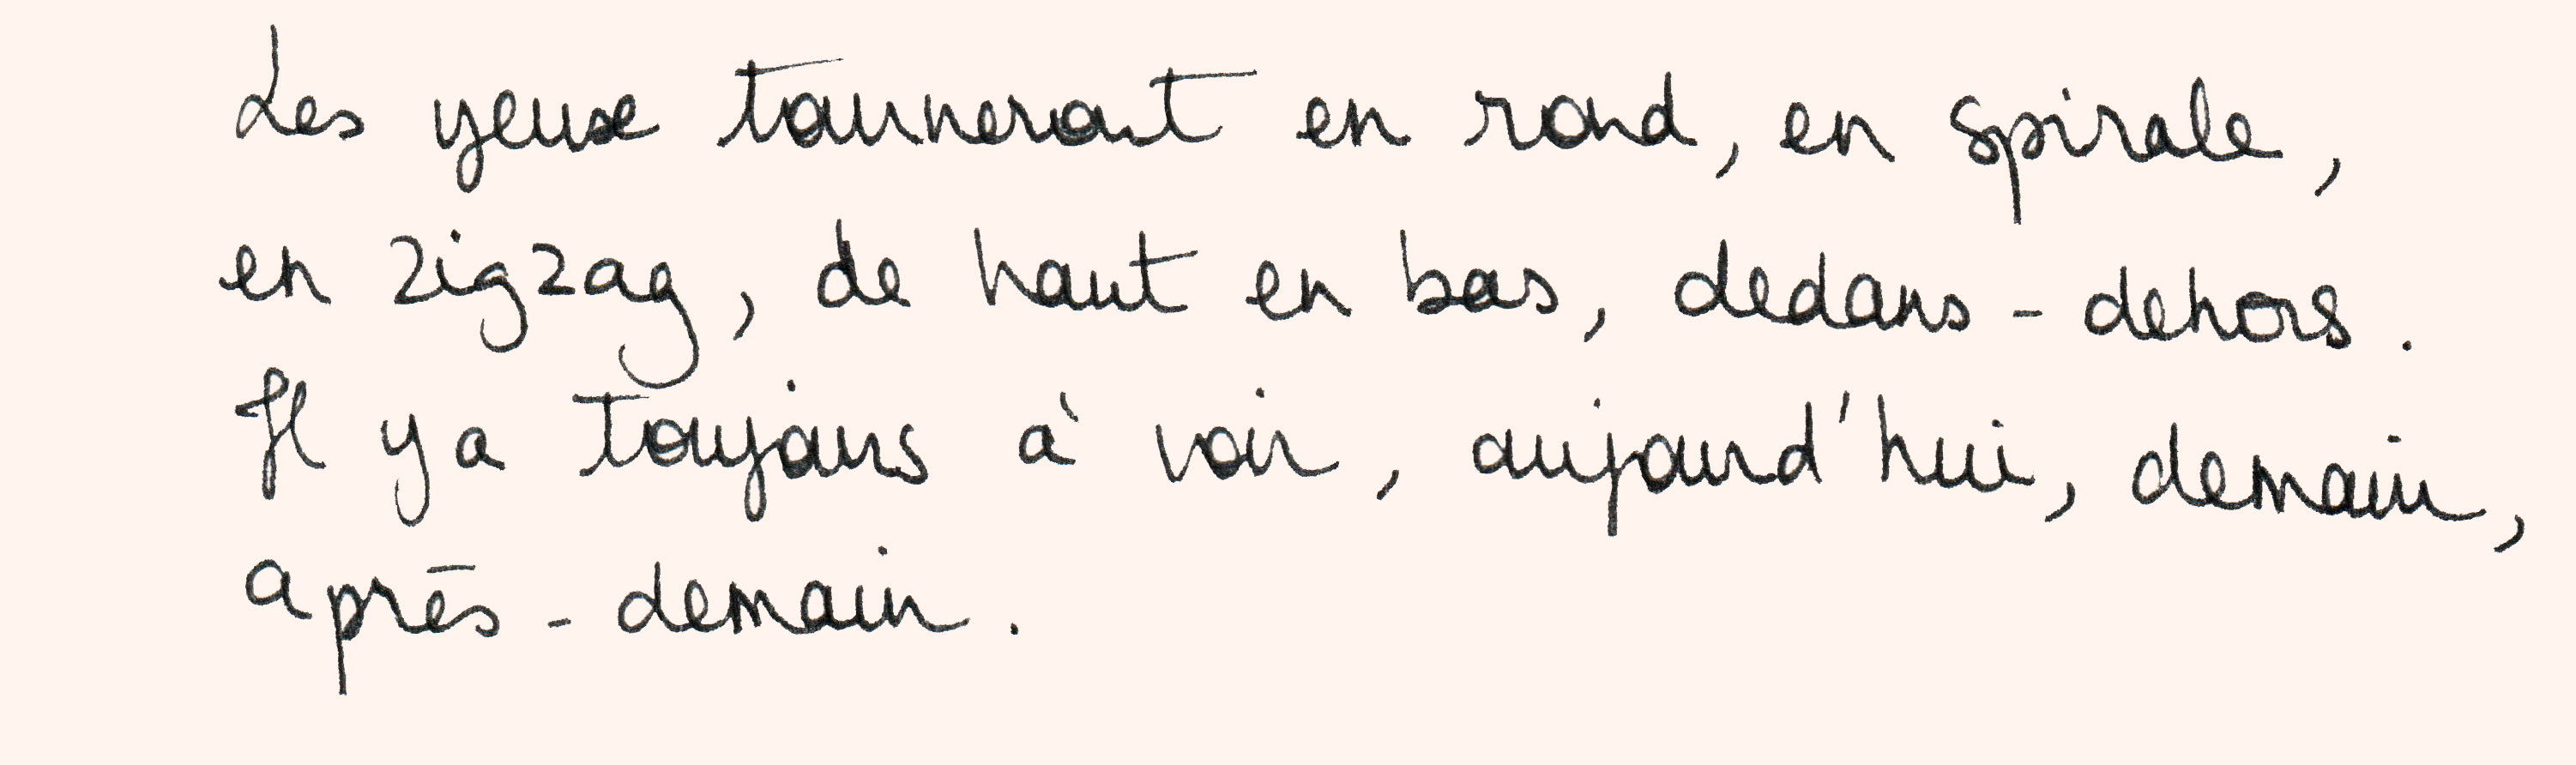 Les yeux tourneront en rond, en spirale,
en zigzag, de haut en bas, dedans-dehors.
Il y a toujours à voir, aujourd'hui, demain,
après-demain.